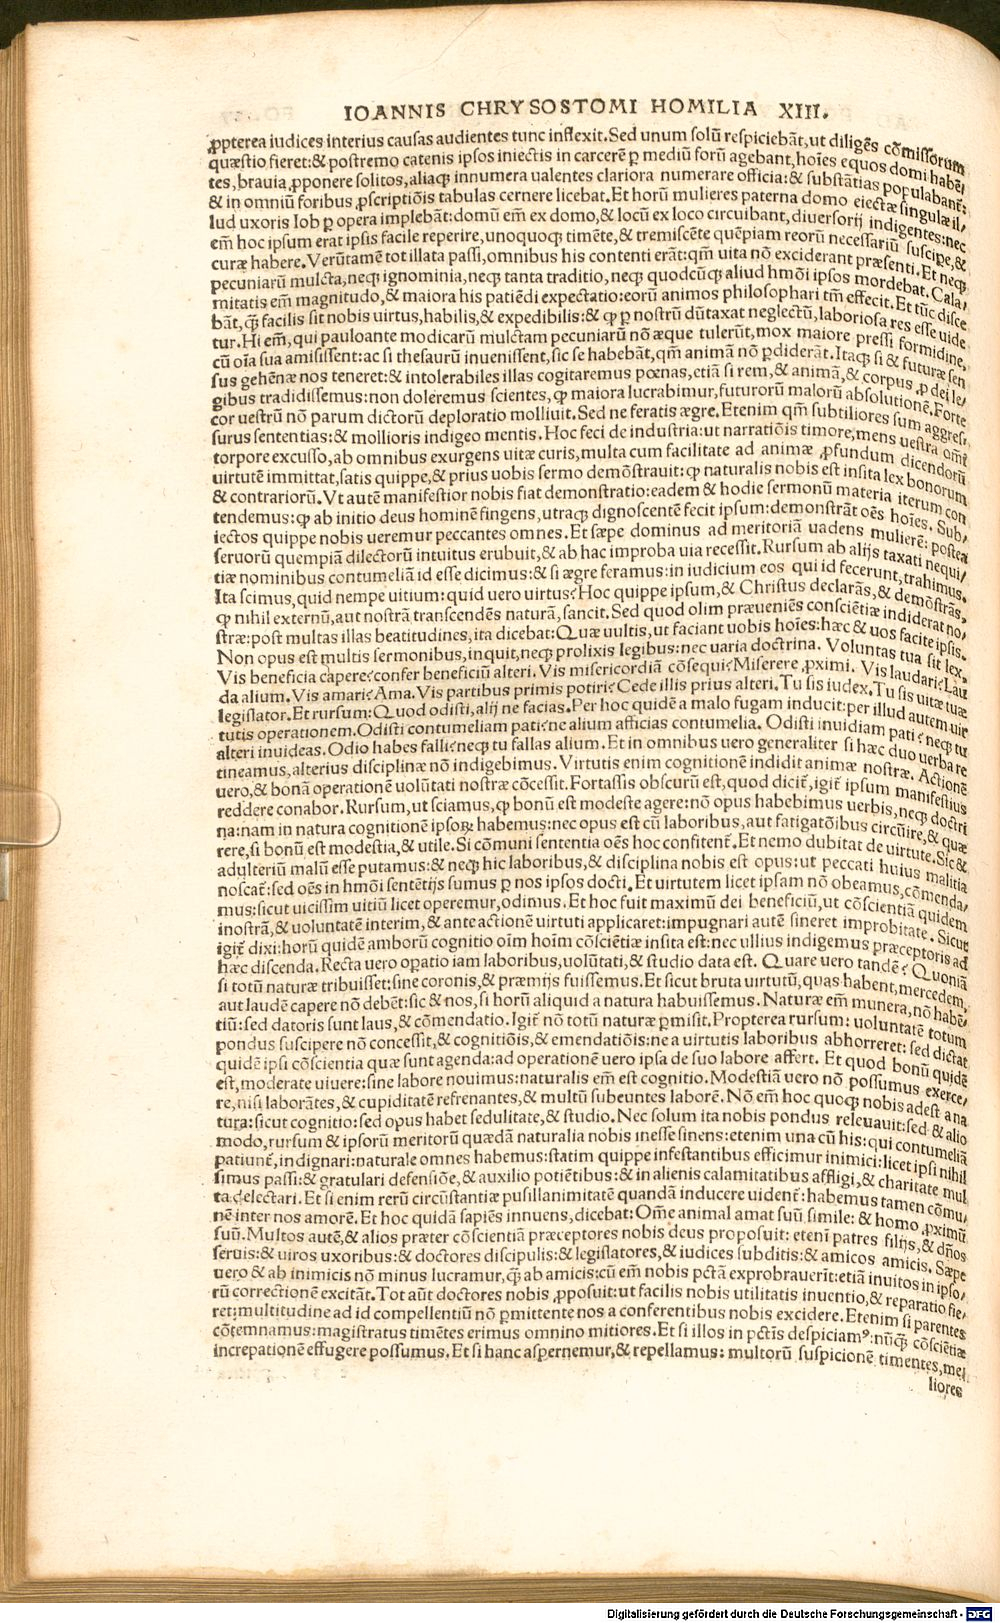 IOANNIS CHRYSOSTOMI HOMILIA XIII.
ꝓpterea iudices interius causas audientes tunc inflexit. Sed unum solũ respiciebãt, ut diligẽs cõmissorum
quæstio fieret: & postremo catenis ipsos iniectis in carcerẽ ꝑ mediũ forũ agebant, hoĩes equos domi habẽ/
tes, brauia, ꝓponere solitos, aliaqꝫ innumera ualentes clariora numerare officia: & substãtias populabant̃:
& in omniũ foribus, ꝓscriptiõis tabulas cernere licebat. Et horũ mulieres paterna domo eiectæ singulæ il/
lud uxoris Iob ꝑ opera implebãt: domũ em̃ ex domo, & locũ ex loco circuibant, diuersorij indigentes: nec
em̃ hoc ipsum erat ipsis facile reperire, unoquoqꝫ timẽte, & tremiscẽte quẽpiam reorũ necessariũ suscipe, &
curæ habere. Verũtamẽ tot illata passi, omnibus his contenti erãt: qm̃ uita nõ exciderant præsenti. Et neqꝫ
pecuniarũ mulcta, neqꝫ ignominia, neqꝫ tanta traditio, neqꝫ quodcũqꝫ aliud hmõi ipsos mordebat. Cala/
mitatis em̃ magnitudo, & maiora his patiẽdi expectatio: eorũ animos philosophari tm̃ effecit. Et tũc disce
bãt, ꝙ̃ facilis sit nobis virtus, habilis, & expedibilis: & ꝙ ꝑ nostrũ dũtaxat neglectũ, laboriosa res esse uide
tur. Hi em̃, qui pauloante modicarũ mulctam pecuniarũ nõ æque tulerũt, mox maiore pressi formidine,
cũ oĩa sua amisissent: ac si thesaurũ inuenissent, sic se habebãt, qm̃ animã nõ ꝑdiderãt. Itaqꝫ si & futuræ sen
sus gehẽnæ nos teneret: & intolerabiles illas cogitaremus pœnas, etiã si rem, & animã, & corpus, ꝓ dei le/
gibus tradidissemus: non doleremus scientes, ꝙ maiora lucrabimur, futurorũ malorũ absolutionẽ. Forte
cor uestrũ nõ parum dictorũ deploratio molliuit. Sed ne feratis ægre. Etenim qm̃ subtiliores sum aggres/
surus sententias: & mollioris indigeo mentis. Hoc feci de industria: ut narratiõis timore, mens uestra om̃i
torpore excusso, ab omnibus exurgens uitæ curis, multa cum facilitate ad animæ, ꝓfundum dicendorũ
uirtutẽ immittat, satis quippe, & prius uobis sermo demõstrauit: ꝙ naturalis nobis est insita lex bonorum
& contrariorũ. Vt autẽ manifestior nobis fiat demonstratio: eadem & hodie sermonũ materia iterum con
tendemus: ꝙ ab initio deus hominẽ fingens, utraqꝫ dignoscentẽ fecit ipsum: demonstrãt oẽs hoĩes. Sub/
iectos quippe nobis ueremur peccantes omnes. Et sæpe dominus ad meritoriã uadens mulierẽ: postea
seruorũ quempiã dilectorũ intuitus erubuit, & ab hac improba uia recessit. Rursum ab alijs taxati nequi/
tiæ nominibus contumeliã id esse dicimus: & si ægre feramus: in iudicium eos qui id fecerunt, trahimus.
Ita scimus, quid nempe uitium: quid uero uirtus? Hoc quippe ipsum, & Christus declarãs, & demõstrãs,
ꝙ nihil externũ, aut nostrã transcendẽs naturã, sancit. Sed quod olim præueniẽs consciẽtiæ indiderat no/
stræ: post multas illas beatitudines, ita dicebat: Quæ uultis, ut faciant uobis hoĩes: hæc & uos facite ipsis.
Non opus est multis sermonibus, inquit, neqꝫ prolixis legibus: nec uaria doctrina. Voluntas tua sit lex.
Vis beneficia capere? confer beneficiũ alteri. Vis misericordiã cõsequi? Miserere, ꝓximi. Vis laudari? Lau
da alium. Vis amari? Ama. Vis partibus primis potiri? Cede illis prius alteri. Tu sis iudex. Tu sis uitæ tuæ
legislator. Et rursum: Quod odisti, alij ne facias. Per hoc quidẽ a malo fugam inducit: per illud autem uir
tutis operationem. Odisti contumeliam pati? ne alium afficias contumelia. Odisti inuidiam pati? neqꝫ tu
alteri inuideas. Odio habes falli? neqꝫ tu fallas alium. Et in omnibus uero generaliter si hæc duo uerba re
tineamus, alterius disciplinæ nõ indigebimus. Virtutis enim cognitionẽ indidit animæ nostræ. Actionẽ
uero, & bonã operationẽ uolũtati nostræ cõcessit. Fortassis obscurũ est, quod dicit̃, igit̃ ipsum manifestius
reddere conabor. Rursum, ut sciamus, ꝙ bonũ est modeste agere: nõ opus habebimus uerbis, neqꝫ doctri
na: nam in natura cognitionẽ ipsoꝝ habemus: nec opus est cũ laboribus, aut fatigatõibus circũire, & quæ
rere, si bonũ est modestia, & utile. Si cõmuni sententia oẽs hoc confitent̃. Et nemo dubitat de uirtute. Sic &
adulteriũ malũ esse putamus: & neqꝫ hic laboribus, & disciplina nobis est opus: ut peccati huius malitia
noscat̃: sed oẽs in hmõi sentẽtijs sumus ꝑ nos ipsos docti. Et uirtutem licet ipsam nõ obeamus, cõmenda/
mus: sicut uicissim uitiũ licet operemur, odimus. Et hoc fuit maximũ dei beneficiũ, ut cõscientiã quidem
inostrã, & uoluntatẽ interim, & ante actionẽ uirtuti applicaret: impugnari autẽ sineret improbitate. Sicut
igit̃ dixi: horũ quidẽ amborũ cognitio oĩm hoĩm cõsciẽtiæ insita est: nec ullius indigemus præceptoris ad
hæc discenda. Recta uero oꝑatio iam laboribus, uolũtati, & studio data est. Quare uero tandẽ? Quoniã
si totũ naturæ tribuisset: sine coronis, & præmijs fuissemus. Et sicut bruta uirtutũ, quas habent, mercedem,
aut laudẽ capere nõ debẽt: sic & nos, si horũ aliquid a natura habuissemus. Naturæ em̃ munera, nõ habẽ/
tiũ: sed datoris sunt laus, & cõmendatio. Igit̃ nõ totũ naturæ ꝑmisit. Propterea rursum: uoluntatẽ totum
pondus suscipere nõ concessit, & cognitiõis, & emendatiõis: ne a uirtutis laboribus abhorreret: sed dictat
quidẽ ipsi cõscientia quæ sunt agenda: ad operationẽ uero ipsa de suo labore affert. Et quod bonũ quidẽ
est, moderate uiuere: sine labore nouimus: naturalis em̃ est cognitio. Modestiã uero nõ possumus exerce/
re, nisi laborãtes, & cupiditatẽ refrenantes, & multũ subeuntes laborẽ. Nõ em̃ hoc quoqꝫ nobis adest a na
tura: sicut cognitio: sed opus habet sedulitate, & studio. Nec solum ita nobis pondus releuauit: sed & alio
modo, rursum & ipsorũ meritorũ quædã naturalia nobis inesse sinens: etenim una cũ his: qui contumeliã
patiunt̃, indignari: naturale omnes habemus: statim quippe infestantibus efficimur inimici: licet ipsi nihil
simus passi: & gratulari defensiõe, & auxilio potiẽtibus: & in alienis calamitatibus affligi, & charitate mul
ta delectari. Et si enim rerũ circũstantiæ pusillanimitatẽ quandã inducere uident̃: habemus tamen cõmu/
nẽ inter nos amorẽ. Et hoc quidã sapiẽs innuens, dicebat: Om̃e animal amat suũ simile: & homo, ꝓximũ
suũ. Multos autẽ, & alios præter cõscientiã præceptores nobis deus proposuit: etenĩ patres filijs, & dños
seruis: & uiros uxoribus: & doctores discipulis: & legislatores, & iudices subditis: & amicos amicis. Sæpe
uero & ab inimicis nõ minus lucramur, ꝙ̃ ab amicis: cũ em̃ nobis pctã exprobrauerĩt: etiã inuitos in ipso/
rũ correctionẽ excitãt. Tot aũt doctores nobis, ꝓposuit: ut facilis nobis utilitatis inuentio, & reparatio fie/
ret: multitudine ad id compellentiũ nõ ꝑmittente nos a conferentibus nobis excidere. Etenim si parentes
cõtemnamus: magistratus timẽtes erimus omnino mitiores. Et si illos in pctĩs despiciamꝰ: nũꝙ̃ cõsciẽtiæ
increpationẽ effugere possumus. Et si hanc aspernemur, & repellamus: multorũ suspicionẽ timentes, me/
liores
Digitalisierung gefördert durch die Deutsche Forschungsgemeinschaft - DFG